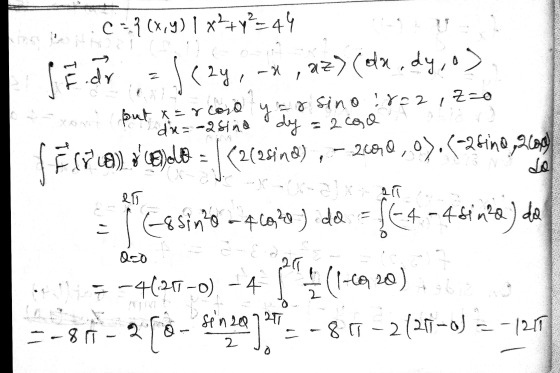 C = {(x,y) | x²+y²=4}
∫ F⃗.dr⃗ = ∫ ⟨2y, -x, xz⟩ ⟨dx, dy, 0⟩
put x = r cosθ y = r sinθ : r=2, z=0
dx = -2sinθ dy = 2cosθ
∫ F⃗(r⃗(θ)) r⃗'(θ)dθ = ∫⟨2(2sinθ), -2cosθ, 0⟩.⟨-2sinθ, 2cosθ⟩ dθ
= ∫_{θ=0}^{2π} (-8sin²θ - 4cos²θ) dθ = ∫_0^{2π} (-4 - 4sin²θ) dθ
= -4(2π-0) - 4 ∫_0^{2π} 1/2 (1-cos 2θ)
= -8π - 2 [θ - sin2θ/2]_0^{2π} = -8π - 2(2π-0) = -12π